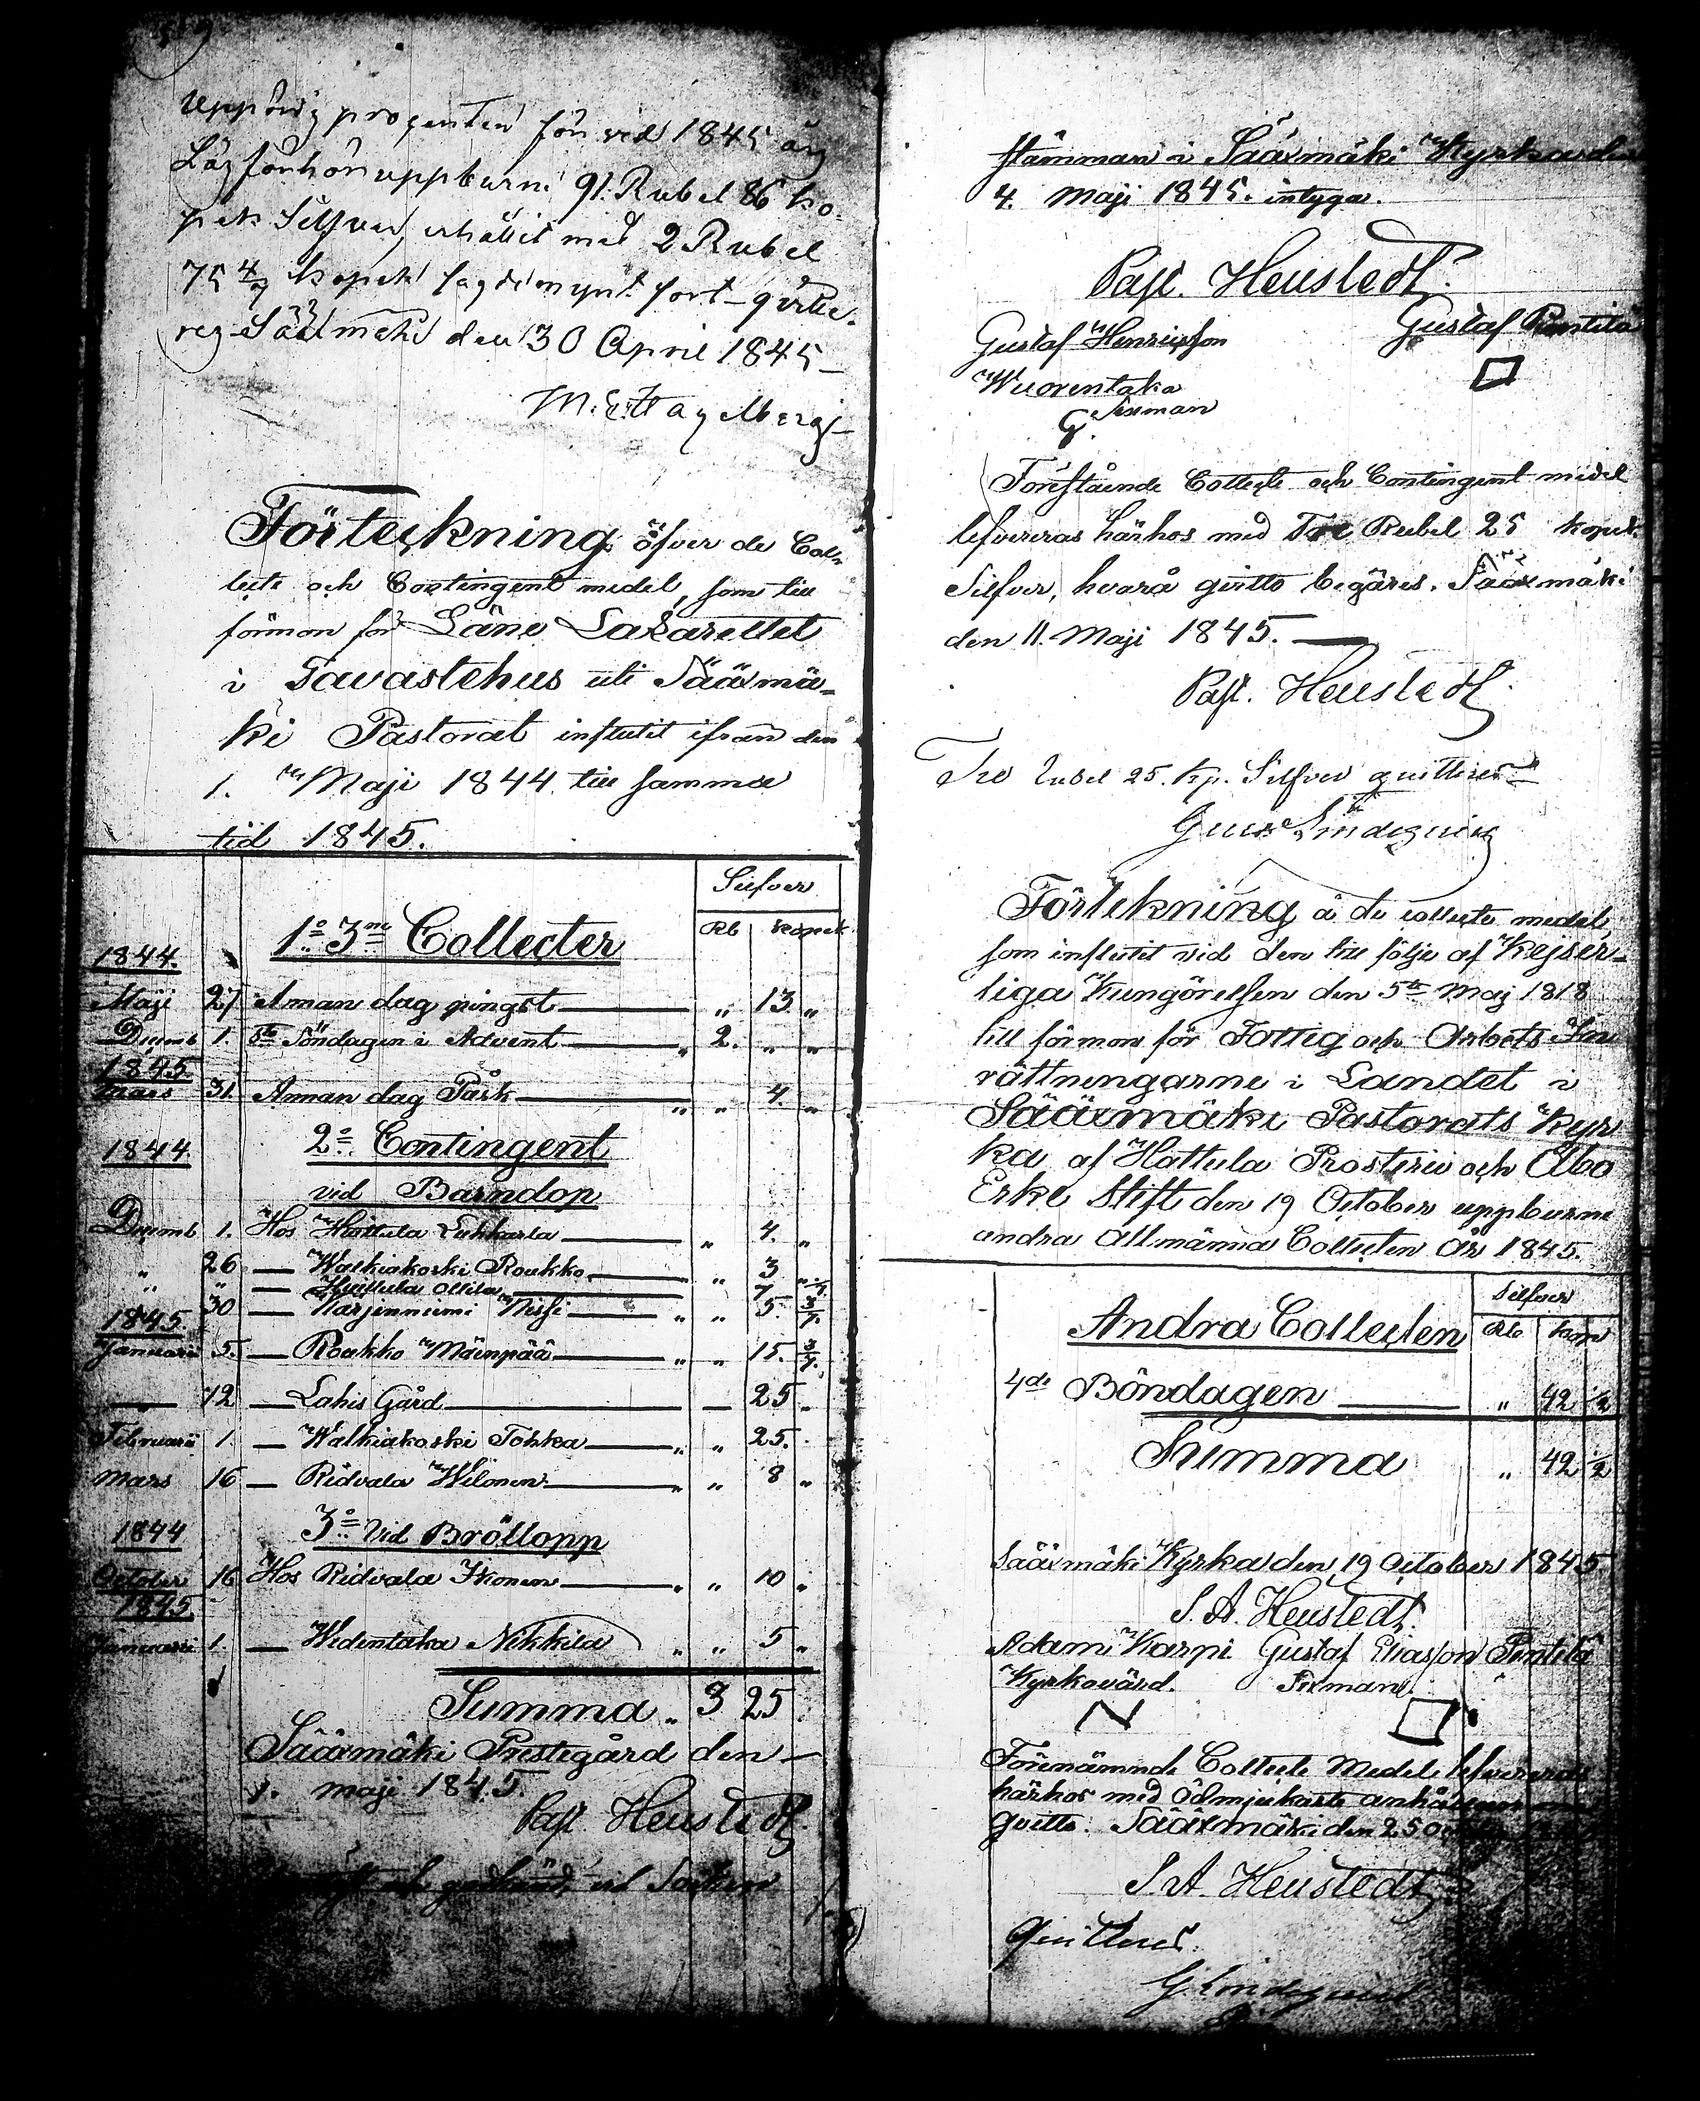 procenten för vid 1845 års
uppburne 91. Rubel 86 ko-
pek Silfver, erhållit med 2 Rubel
75 4/7 kopek
Säämäki den 30 April 1845
Förteckning öfver de Col-
lecte och Contingent medel, som till
förmon för Läns Lazarettet
i Tavastehus uti Sääxmä-
ki Pastorat influtit ifrån den
1. Maji 1844 till samma
tid 1845.
Silfver
Rb kopek
1844. 1º 3ne Collecter
Maji 27 Annan dag pingst " 13. "
Decemb 1. Söndagen i Advent " 2. " "
1845.
Mars 31. Annan dag Påsk " " 4. "
1844 2º Contingent
vid Barndop
Decemb 1. Hos Huittula Lukkarla " 4. "
" 26 — Walkiakoski Roukko " " 3
" " — Huittula Ollila 7
30 — Karjenniemi Nissi " " 5. 3/7.
1845.
Januarii 5. — Roukko Mäenpää " " 15. 3/7.
— 12 — Lahis Gård — 25 "
Februarii 1. — Walkiakoski Tohka " " 25.
Mars 16 — Ridvala Wilonen " " 8 "
1844 3º Vid Bröllopp
October 16 Hos Ridvala Ikonen " " 10 "
1845
Januarii 1. — Wedentaka Nikkilä " " 5 "
Summa " 3 25
Sääxmäki Prestegård den
1. maji 1845.
Past. Heustedt.
vid Socken
stämman i Sääxmäki Kyrka den
4. Maji 1845. intygar.
Past. Heustedt.
Gustaf Henricsson Gustaf Penttilä
Wuorentaka
Sexman
G.
Förestående Collecte och Contingent medel
lefvereras härhos med Tre Rubel 25 kopek
Silfver, hvarå quitto begäres. Sääxmäki
den 11. Maji 1845.
Past. Heustedt.
Tre Rubel 25. kp. Silfver quitteres
Förtekning å de collecte medel,
som influtit vid den till följe af Kejser-
liga Kungörelsen den 5te Maj 1818
till förmon för Fattig och Arbets In
rättningarne i Landet i
Sääxmäki Pastorats Kyr
ka af Hattula Prosteri och Åbo
Erke Stift den 19 October uppburne
andra Allmänna Collecten År 1845.
Silfver
Andra Collecten Rb kop
4de Böndagen " 42 1/2
Summa " 42 1/2
Sääxmäki Kyrka den 19 October 1845.
S. A. Heustedt.
Adam Karpi Gustaf Eliasson Penttilä
Kyrkovärd. Sexman.
N
Förenämnde Collecte Medel lefvereras
härhos med ödmjukaste anhållan
quitto. Sääxmäki den 25 October
S. A. Heustedt
Quitteres.
G. Lindequist